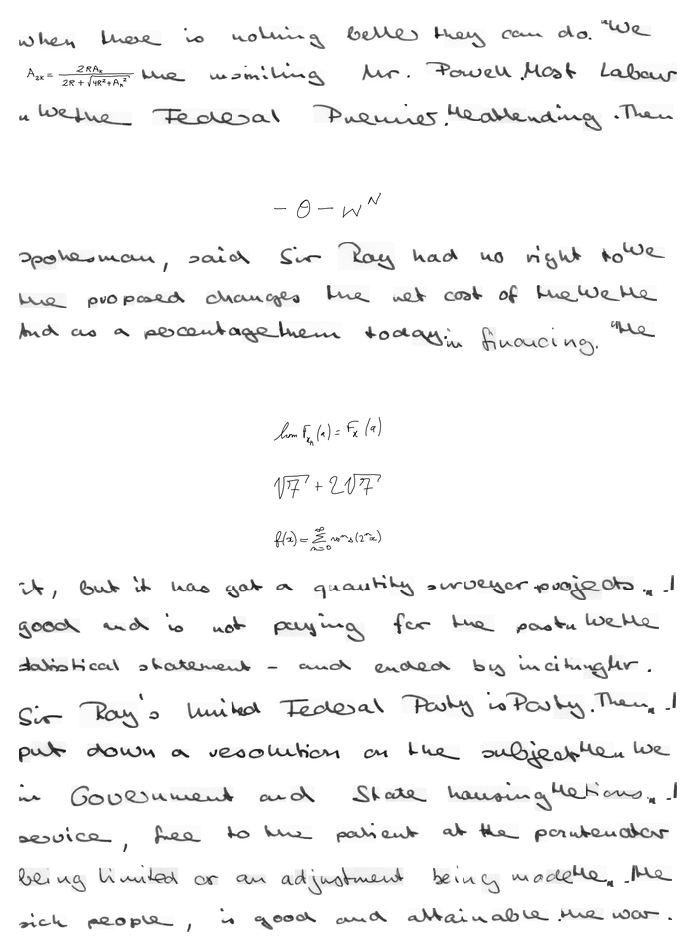 when there is nothing better they can do. "We
A_{2K} = \frac{2RA_K}{2R + \sqrt{4R^2 + A_K^2}} the Mr. Powell. Most Labour
" We the Federal Premier. He attending. Then
- θ - w^N
spokesman, said Sir Roy had no right to We
the proposed changes the net cost of the We He
And as a percentage them today. in financing. "He
lim F_{x_n}(a) = F_x(a)
√7 + 2√7
f(x) = \sum_{n=0}^{∞} (2^n x)
it, but it has got a quantity surveyor projects. " . I
good and is not paying for the past " We He
statistical statement - and ended by inciting Mr.
Sir Roy's United Federal Party is Party. Then " . I
put down a resolution on the subject He " We
in Government and State housing . " . I
service, free to the patient at the point
being limited or an adjustment being made He " . He
sick people, is good and attainable. the war.